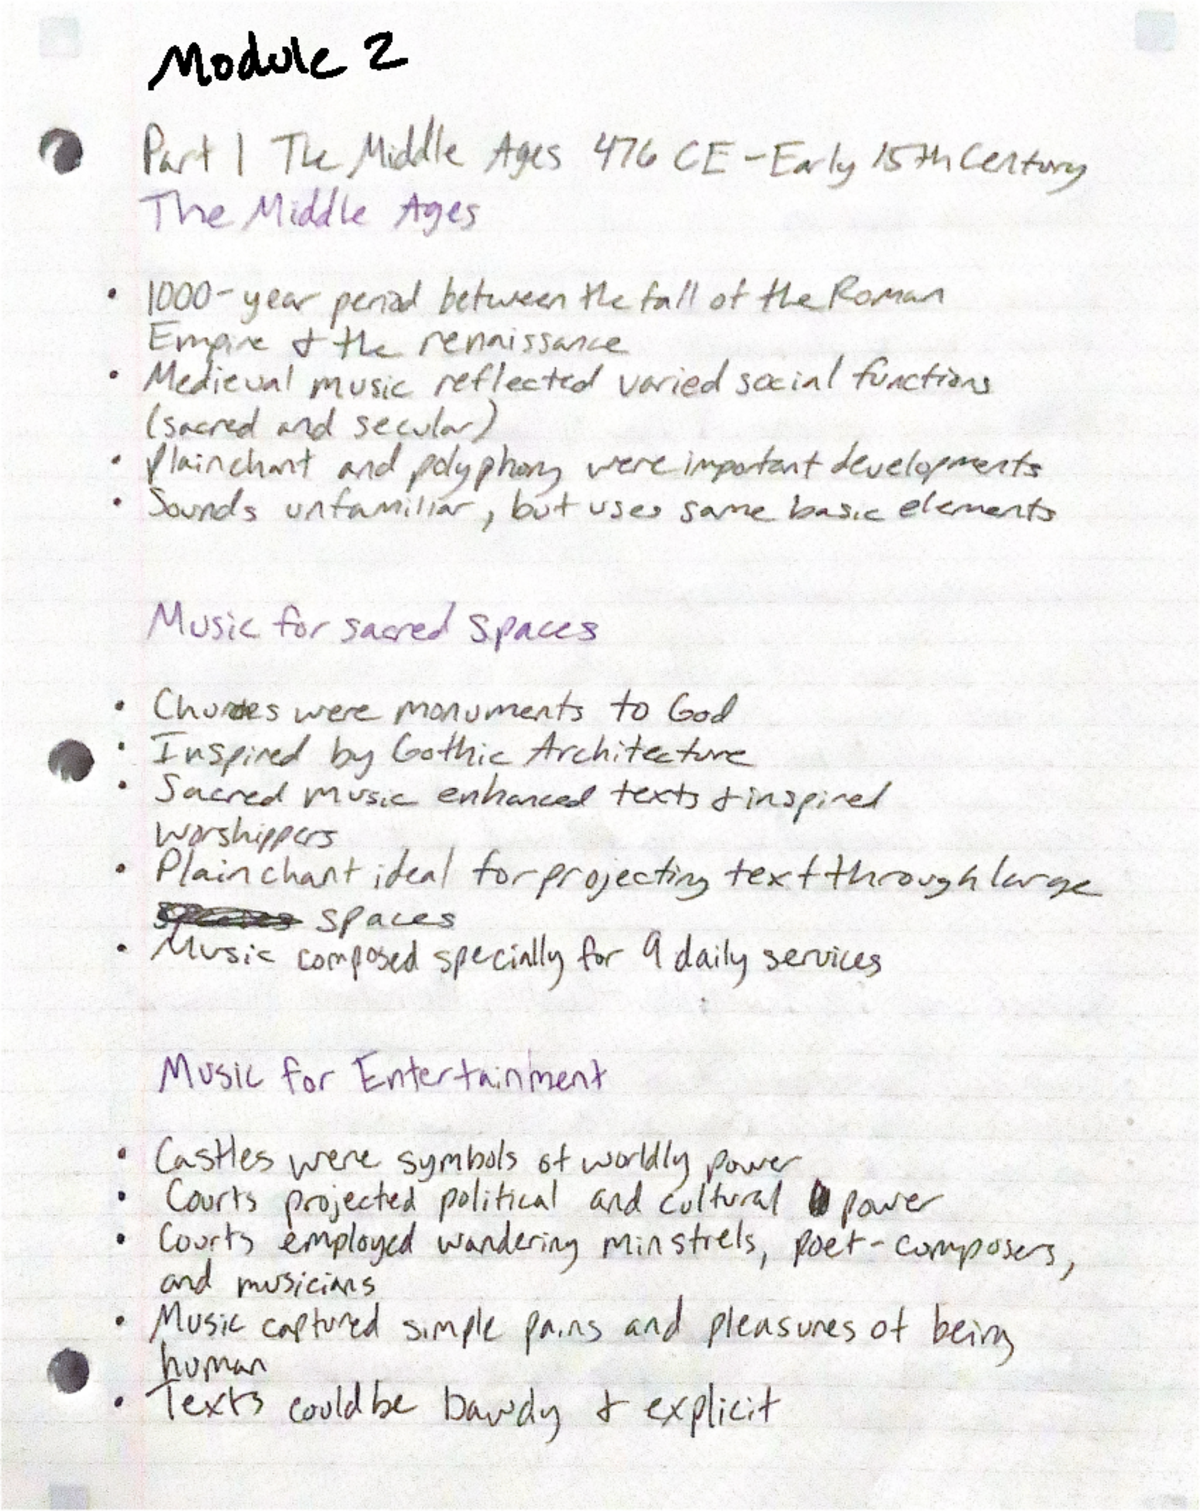 Module 2
Part 1 The Middle Ages 476 CE - Early 15th Century
The Middle Ages
• 1000-year period between the fall of the Roman
Empire & the rennaissance
• Medieval music reflected varied social functions
(sacred and secular)
• Plainchant and polyphony were important developments
• Sounds unfamiliar, but uses same basic elements
Music for sacred spaces
• were monuments to God
• Inspired by Gothic Architecture
• Sacred music enhanced texts & inspired
worshippers
• Plainchant ideal for projecting text through large
spaces
• Music composed specially for 9 daily services
Music for Entertainment
• Castles were symbols of worldly power
• Courts projected political and cultural power
• Courts employed wandering minstrels, poet-composers,
and musicians
• Music captured simple pains and pleasures of being
human
• Texts could be bawdy & explicit